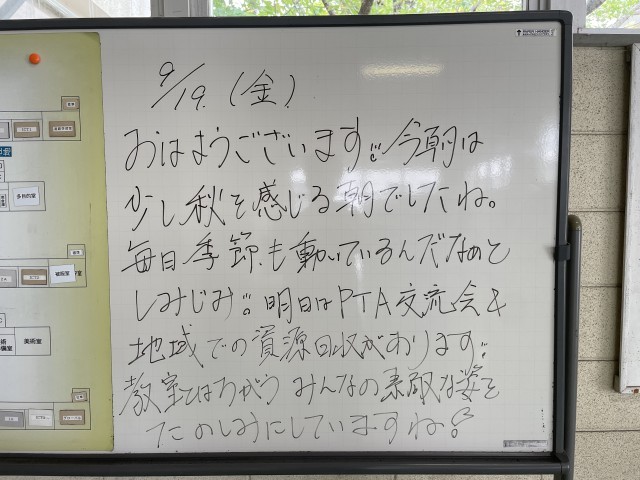 9/19(金)
おはようございます。今朝は
少し秋を感じる朝でしたね。
毎日季節も動いているんだなあと
しみじみ。明日はPTA交流会&
地域での資源回収があります。
教室とはちがうみんなの素敵な姿を
たのしみにしていますね。
多目的室
美術室